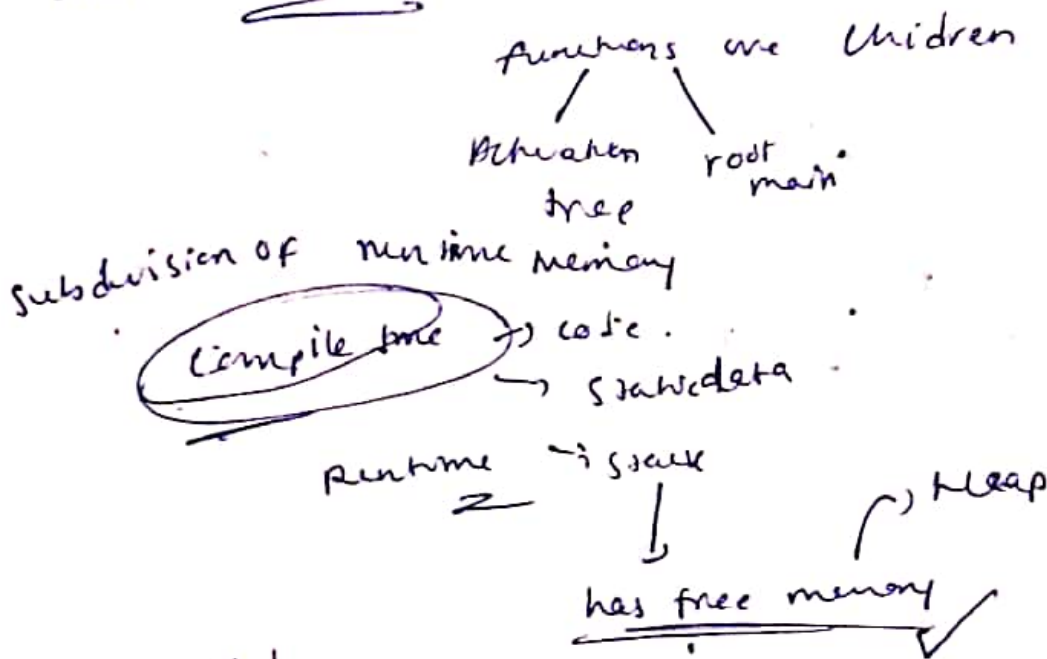 functions are Chidren
Activation tree
root main
Subdivision of runtime memory
Compile time → code.
→ static data
Runtime → stack
Heap
has free memory